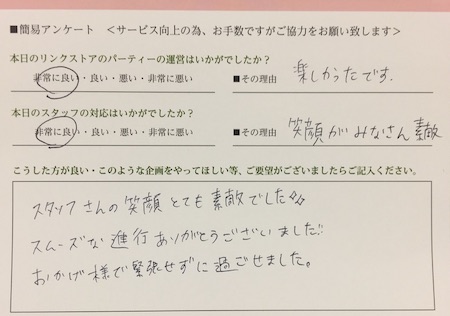 ■簡易アンケート ＜サービス向上の為、お手数ですがご協力をお願い致します＞
本日のリンクストアのパーティーの運営はいかがでしたか？
非常に良い・良い・悪い・非常に悪い ■その理由 楽しかったです.
本日のスタッフの対応はいかがでしたか？
非常に良い・良い・悪い・非常に悪い ■その理由 笑顔がみなさん素敵
こうした方が良い・このような企画をやってほしい等、ご要望がございましたらご記入ください。
スタッフさんの笑顔とても素敵でした!!
スムーズな進行ありがとうございました!!
おかげ様で緊張せずに過ごせました。